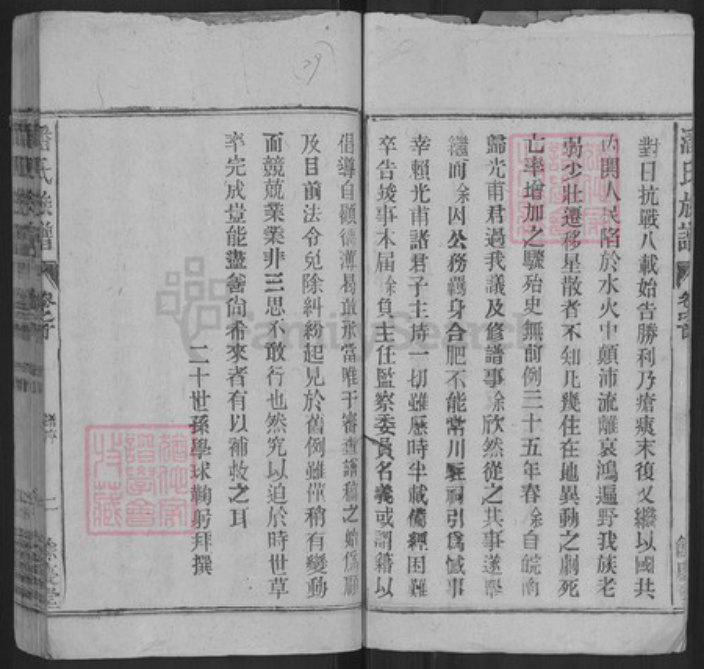 對日抗戰八載始告勝利乃瘡痍未復又繼以國共
內鬨人民陷於水火中顛沛流離哀鴻遍野我族老
弱少壯遷移星散者不知凡幾住在地異動之劇死
亡率增加之驟殆史無前例三十五年春余自皖南
歸光甫君過我議及修譜事余欣然從之其事遂舉
繼而余因公務羈身合肥不能常川駐祠引爲憾事
幸賴光甫諸君子主持一切雖歷時半載備經困難
卒告竣事本届余負主任監察委員名義或謂藉以
倡導自顧德薄曷敢承當唯于審查譜稿之始爲顧
及目前法令兒除糾紛起見於舊例雖僅稍有變動
而競競業業非三思不敢行也然究以迫於時世草
率完成豈能盡善尚希來者有以補救之耳
二十世孫學球鞠躬拜撰
潘氏族譜
卷之首
潘氏族譜
卷之首
二
29
FamilySearch